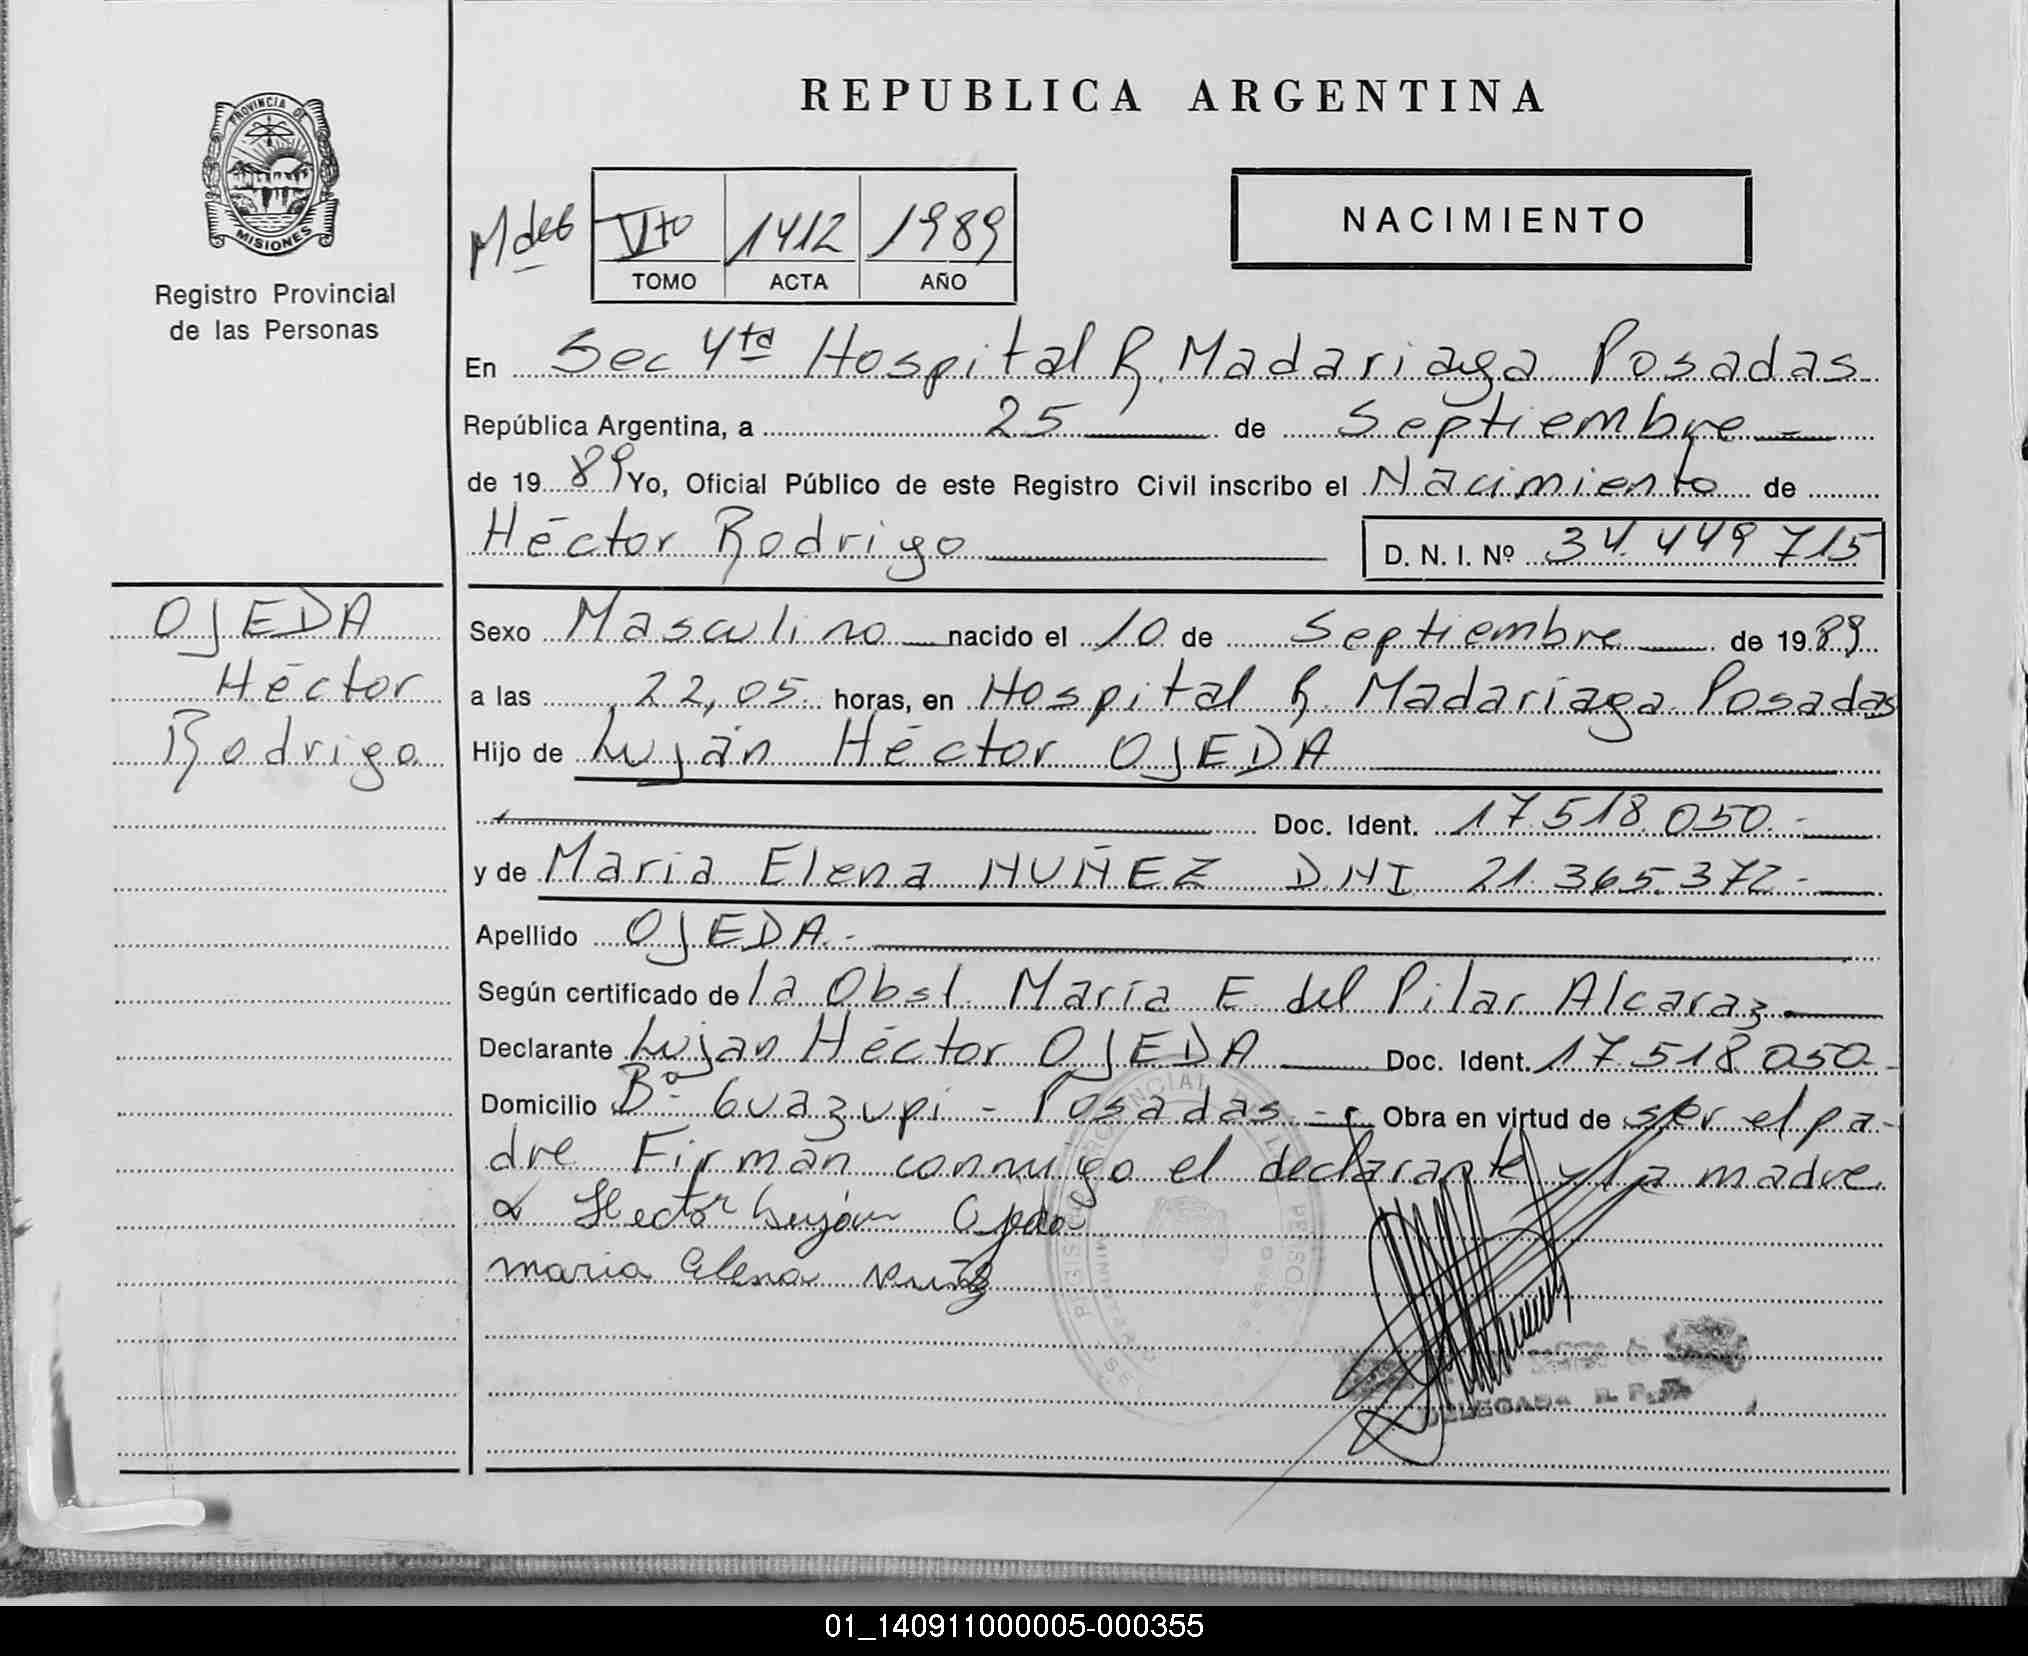 REPUBLICA ARGENTINA
PROVINCIA DE
MISIONES
Registro Provincial
de las Personas
Mdes
VIto 1412 1989
TOMO ACTA AÑO
NACIMIENTO
En Sec 4ta Hospital R. Madariaga Posadas
República Argentina, a 25 de Septiembre
de 1989 Yo, Oficial Público de este Registro Civil inscribo el Nacimiento de
Héctor Rodrigo D. N. I. Nº 34.449 715
OJEDA
Héctor
Rodrigo
Sexo Masculino nacido el 10 de Septiembre de 1989
a las 22,05 horas, en Hospital R. Madariaga Posadas
Hijo de Luján Héctor OJEDA
Doc. Ident. 17.518.050.-
y de Maria Elena NUÑEZ DNI 21.365.372.-
Apellido OJEDA.-
Según certificado de la Obst. María E. del Pilar Alcaraz
Declarante Luján Héctor OJEDA Doc. Ident. 17.518.050-
Domicilio Bº Guazupi - Posadas - Obra en virtud de ser el pa-
dre Firman conmigo el declarante y la madre.
Hector Luján Ojeda
maria Elena Nuñez
DELEGADA R. P.
01_140911000005-000355